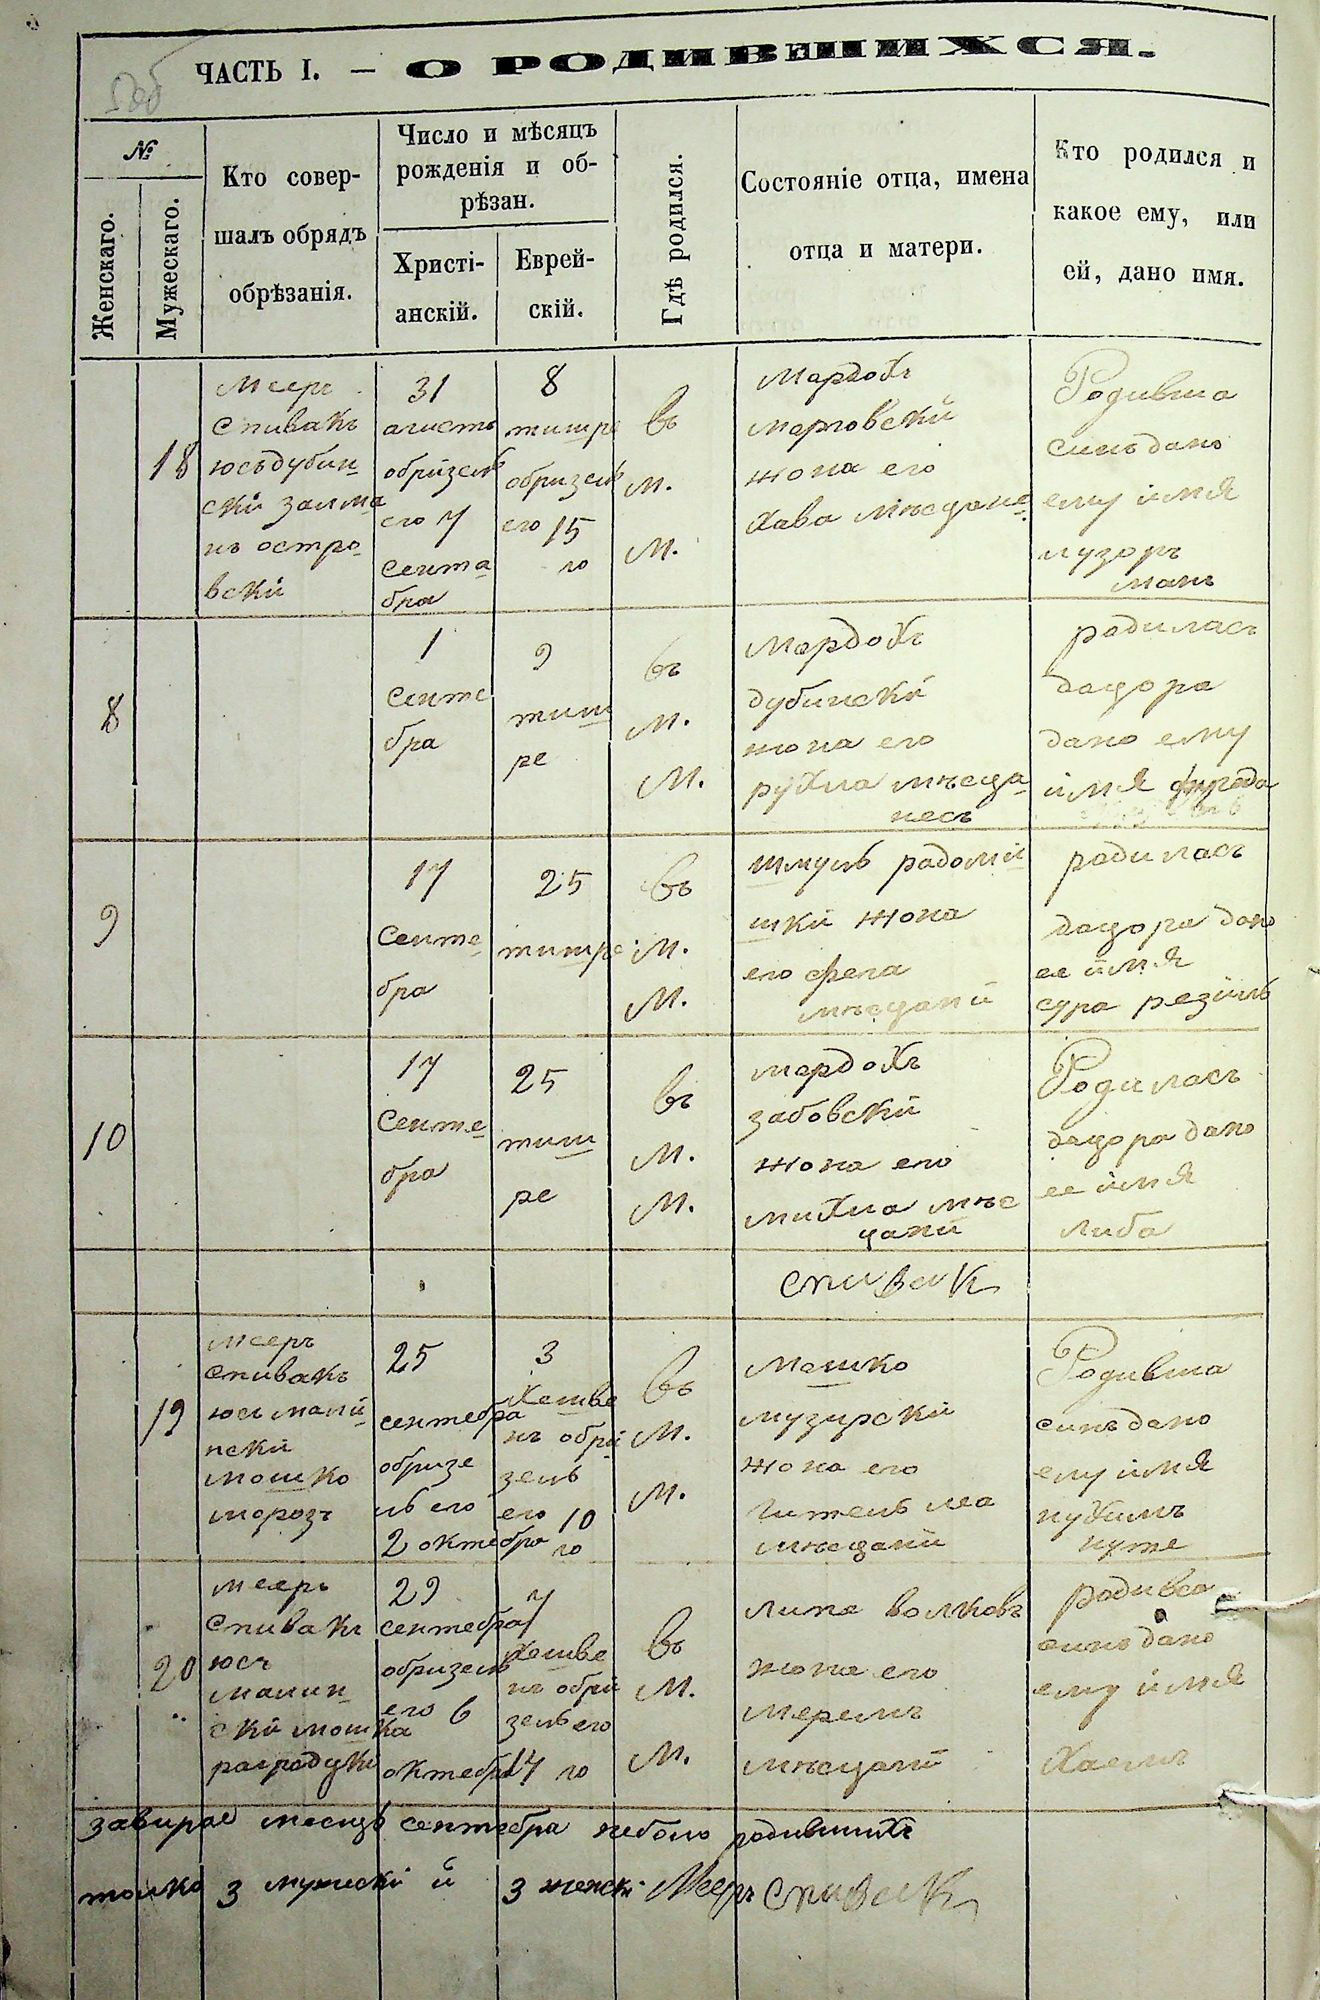 ЧАСТЬ I. — О РОДИВШИХСЯ.
№
Женскаго.
Мужескаго.
Кто совер-
шалъ обрядъ
обрѣзанія.
Число и мѣсяцъ
рожденія и об-
рѣзан.
Христі-
анскій.
Еврей-
скій.
Гдѣ родился.
Состояніе отца, имена
отца и матери.
Кто родился и
какое ему, или
ей, дано имя.
18
Мееръ
Спивакъ
юсъ дубин-
скй залма
нъ остро-
вскй
31
агистъ
обрйзелъ
его 7
сента-
бра
8
тишре
обризелъ
его 15
го
въ
м.
м.
Мардохъ
марговскй
жона его
Хава мѣсдане
Родивша
синъ дано
ему ймя
нузоръ
манъ
8
1
сенте
бра
9
тиш
ре
въ
м.
м.
Мардохъ
дубинскй
жона его
рухла мѣсца-
несъ
родиласъ
дацора
дано ему
ймя фруда
9
17
сенте-
бра
25
тишре
въ
м.
м.
шмулъ радомй
шкй жона
его фега
мѣсцанй
радиласъ
дацора дано
ее ймя
сура резйлъ
10
17
Сенте-
бра
25
тиш
ре
въ
м.
м.
мардохъ
забовскй
жона его
михла мѣс
цанй
Родиласъ
дацора дано
ее ймя
либа
спивак
19
мееръ
спивакъ
юсъ малй-
нскй
мошко
морозъ
25
сентебра
обризе
лъ его
2 октебра
3
Хешве
нъ обрй-
зелъ
его 10
го
въ
м.
м.
мошко
музирскй
жона его
гителъ леа
мѣсцанй
Родивша
синъ дано
ему ймя
нухимъ
нуте
20
мееръ
Спивакъ
юсъ
малин-
скй мошка
раградскй
29
сентебра
обризелъ
его 6
октебра
7
Хешве
нъ обрй
зелъ его
14 го
въ
м.
м.
липе волковъ
жона его
меримъ
мѣсцанй
родивса
синъ дано
ему ймя
Хаемъ
завирае месицъ сентебра неболо родившихъ
толко 3 мужескй й 3 женскй Мееръ спивак